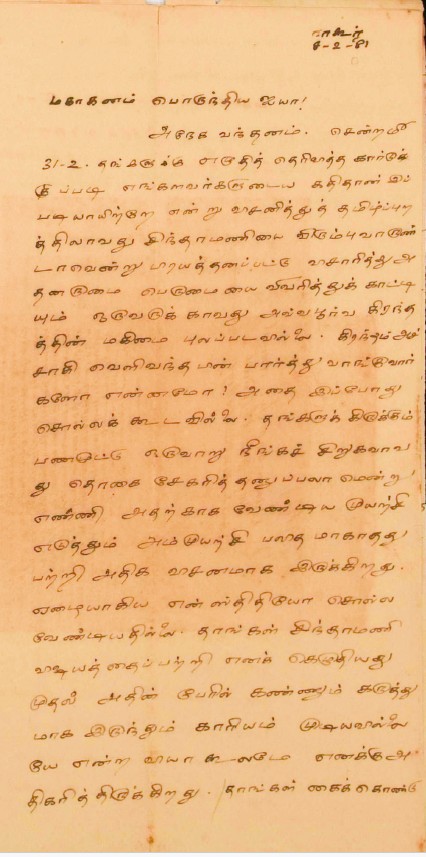 நாகூர்
6-2-81
மகாகனம் பொருந்திய ஐயா!
அநேக வந்தனம். சென்ற மீ
31-2. தங்களுக்கு எழுதித் தெரிவித்த கார்டுக்
கு ப்படி எங்களவர்களுடைய கதிதான் இப்
படியாயிற்றே என்று வசனித்துத் தமிழ்ப்புற
த்திலாவது சிந்தாமணியை விரும்புவாருண்
டாவென்று பிரயத்தனப்பட்டு விசாரித்து அ
தனருமை பெருமையை விவரித்துக் காட்டி
யும் ஒருவருக்காவது அவ்வபூர்வ கிரந்த
த்தின் மகிமை புலப்படவில்லை. கிரந்தம் அச்
சாகி வெளிவந்த பின் பார்த்து வாங்குவார்
களோ என்னமோ! அதை இப்போது
சொல்லக் கூடவில்லை. தங்கட்கு கிடுக்கம்
பணமுட்டு ஒருவாறு நீங்கச் சிறுகவாவ
து தொகை சேகரித்தனுப்பலாமென்று
எண்ணி அதற்காக வேண்டிய முயற்சி
எடுத்தும் அம்முயற்சி பலிதமாகாதது
பற்றி அதிக விசனமாக இருக்கிறது.
ஏழையாகிய என் ஸ்திதியோ சொல்ல
வேண்டியதில்லை. தாங்கள் சிந்தாமணி
விஷயத்தைப்பற்றி எனக் கெழுதியது
முதல் அதின் பேரில் கண்ணும் கருத்து
மாக இருந்தும் காரியம் முடியவில்லை
யே என்ற வியாகூலமே எனக்கு அ
திகரித்திருக்கிறது. தாங்கள் கைக்கொண்டு